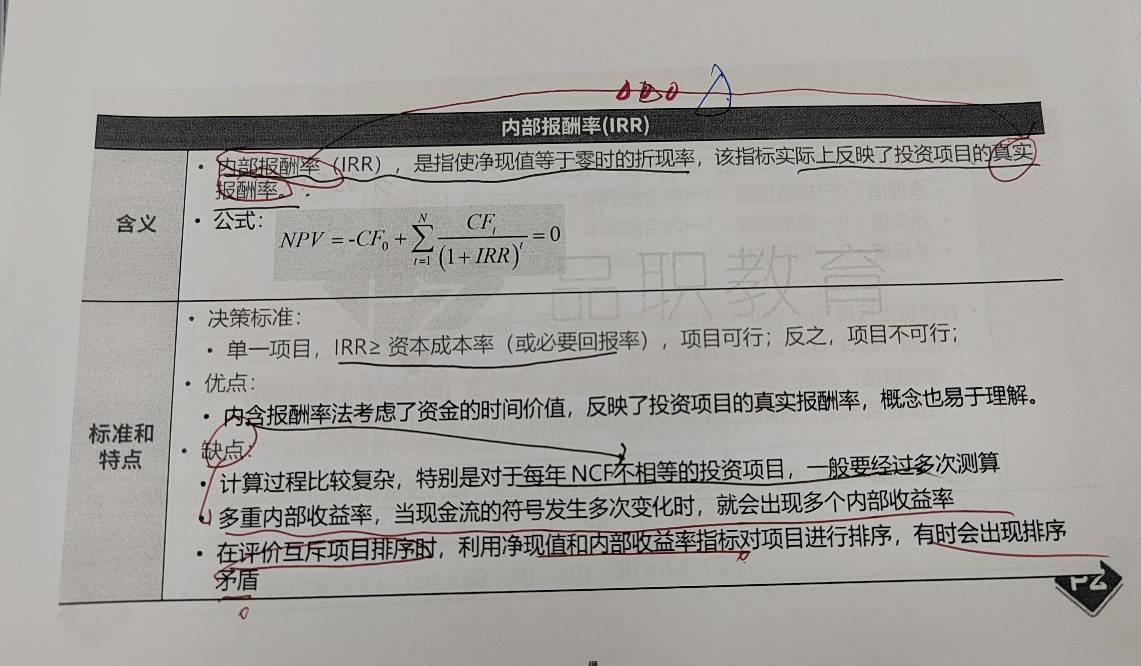 内部报酬率(IRR)
含义
• 内部报酬率（IRR），是指使净现值等于零时的折现率，该指标实际上反映了投资项目的真实
报酬率。
• 公式：
NPV = -CF₀ + ∑_{t=1}^{N} CF_t / (1 + IRR)^t = 0
品职教育
标准和
特点
• 决策标准：
• 单一项目，IRR≥ 资本成本率（或必要回报率），项目可行；反之，项目不可行；
• 优点：
• 内含报酬率法考虑了资金的时间价值，反映了投资项目的真实报酬率，概念也易于理解。
• 缺点：
• 计算过程比较复杂，特别是对于每年 NCF不相等的投资项目，一般要经过多次测算
• 多重内部收益率，当现金流的符号发生多次变化时，就会出现多个内部收益率
• 在评价互斥项目排序时，利用净现值和内部收益率指标对项目进行排序，有时会出现排序
矛盾
PZ